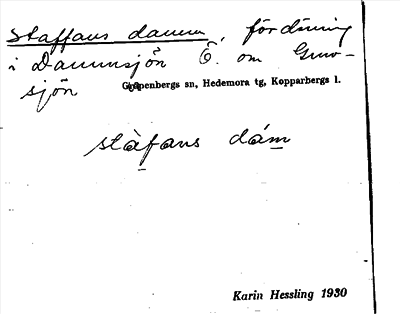 Staffans damm, fördäming
i Dammsjön Ö. om Gruv-
sjön
Garpenbergs sn, Hedemora tg, Kopparbergs l.
stàfans dám
Karin Hessling 1930